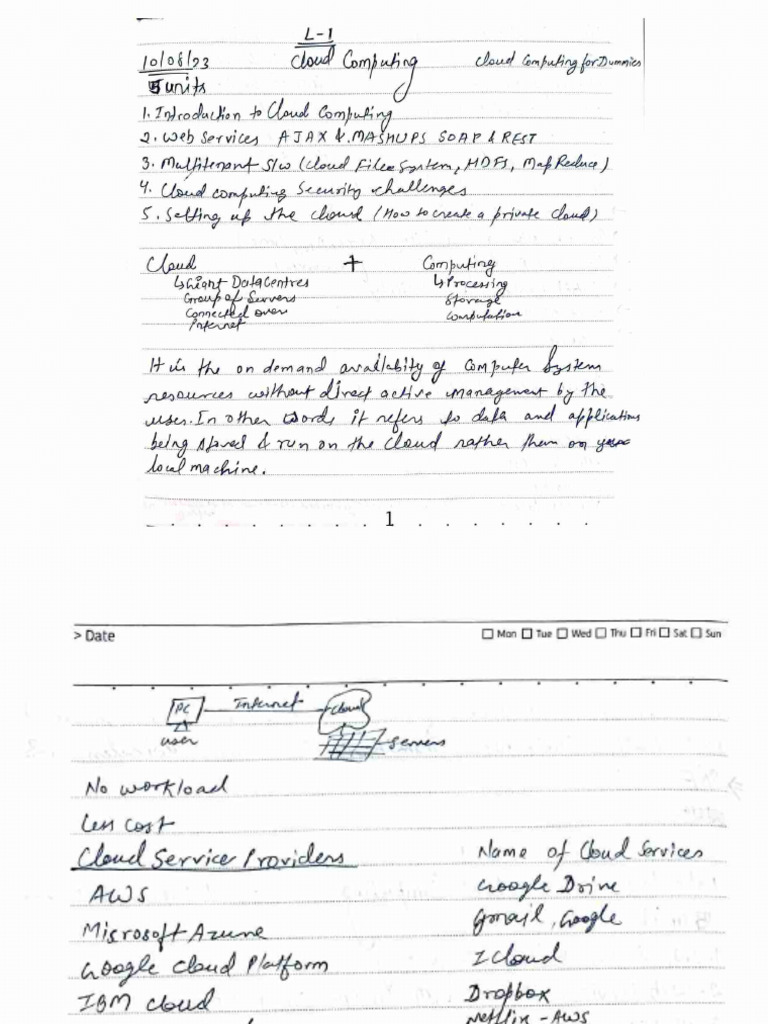 L-1
10/08/23 Cloud Computing Cloud Computing for Dummies
5 units
1. Introduction to Cloud Computing
2. Web Services AJAX & MASHUPS SOAP & REST
3. Multitenant S/w (Cloud File System, HDFS, Map Reduce)
4. Cloud computing Security challenges
5. Setting up the cloud (How to create a private cloud)
Cloud + Computing
↳ Giant DataCentres ↳ Processing
Group of Servers Storage
Connected over Computation
Internet
It is the on demand availabity of Computer System
resources without direct active management by the
user. In other words it refers to data and applications
being stored & run on the Cloud rather them on your
local machine.
1
> Date Mon Tue Wed Thu Fri Sat Sun
PC Internet Cloud
user Servers
No workload
Less cost
Cloud Service Providers Name of Cloud Services
AWS Google Drive
Microsoft Azure Gmail, Google
Google Cloud Platform I Cloud
IBM Cloud Dropbox
Netflix - AWS